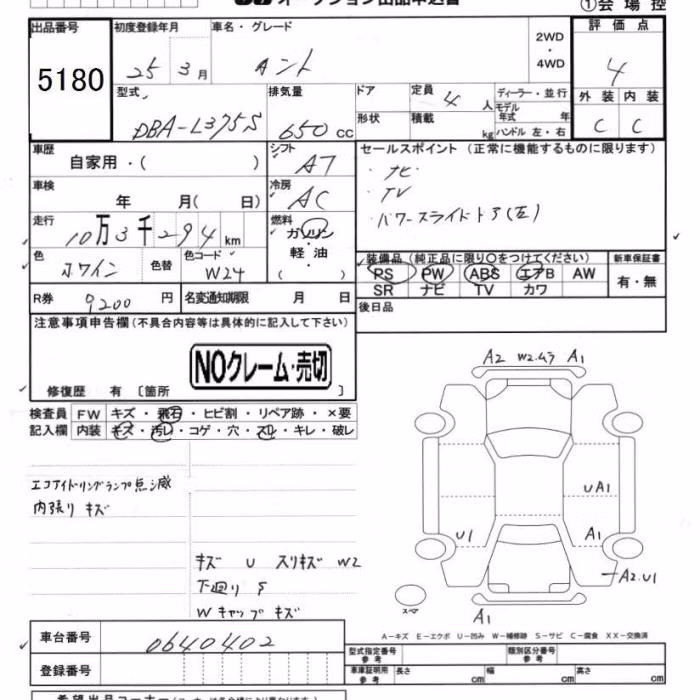 ①会場控
出品番号 初度登録年月 車名・グレード 2WD ・ 4WD 評価点
5180 25 3月 タント 4
型式 排気量 ドア 定員 4 人 ディーラー・並行 外装 内装
DBA-L375S 650 CC 形状 積載 kg モデル年式 年 ハンドル 左・右 C C
車歴 自家用・( ) シフト AT セールスポイント (正常に機能するものに限ります)
車検 年 月( 日) 冷房 AC ・ナビ
・TV
走行 10万3千294km 燃料 ガソリン 軽油 ( ) ・パワースライドドア(左)
色 色替 カラーコード W24 装備品 (純正品に限り○をつけてください) 新車保証書
PS PW ABS エアB AW 有・無
SR ナビ TV カワ
R券 9200 円 名変通知期限 月 日 後日品
注意事項申告欄(不具合内容等は具体的に記入して下さい)
NOクレーム・売切
修復歴 有 〔箇所 〕
A2 W2.ムラ A1
検査員 FW キズ・飛石・ヒビ割・リペア跡・×要
記入欄 内装 キズ・汚レ・コゲ・穴・スレ・キレ・破レ
エコアイドリングランプ点滅
内張り キズ
UA1
U1 A1
キズ U スリキズ W2
A2.U1
下廻り S
Wキャップ キズ
スペア
A1
A-キズ E-エクボ U-凹み W-補修跡 S-サビ C-腐食 XX-交換済
車台番号 0640402
型式指定番号 参考 類別区分番号 参考
登録番号 車庫証明用 参考 長さ cm 幅 cm 高さ cm